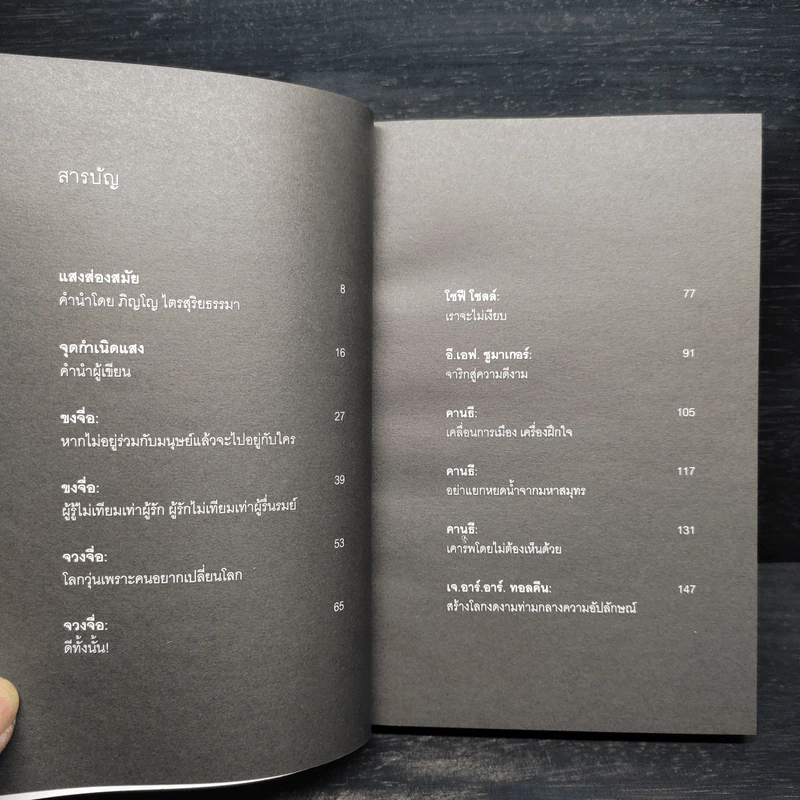 สารบัญ
แสงส่องสมัย
คำนำโดย ภิญโญ ไตรสุริยธรรมา
8
จุดกำเนิดแสง
คำนำผู้เขียน
16
ขงจื่อ:
หากไม่อยู่ร่วมกับมนุษย์แล้วจะไปอยู่กับใคร
27
ขงจื่อ:
ผู้รู้ไม่เทียมเท่าผู้รัก ผู้รักไม่เทียมเท่าผู้รื่นรมย์
39
จวงจื่อ:
โลกวุ่นเพราะคนอยากเปลี่ยนโลก
53
จวงจื่อ:
ดีทั้งนั้น!
65
โซฟี โชลล์:
เราจะไม่เงียบ
77
อี.เอฟ. ชูมาเกอร์:
จาริกสู่ความดีงาม
91
คานธี:
เคลื่อนการเมือง เครื่องฝึกใจ
105
คานธี:
อย่าแยกหยดน้ำจากมหาสมุทร
117
คานธี:
เคารพโดยไม่ต้องเห็นด้วย
131
เจ.อาร์.อาร์. ทอลคีน:
สร้างโลกงดงามท่ามกลางความอัปลักษณ์
147